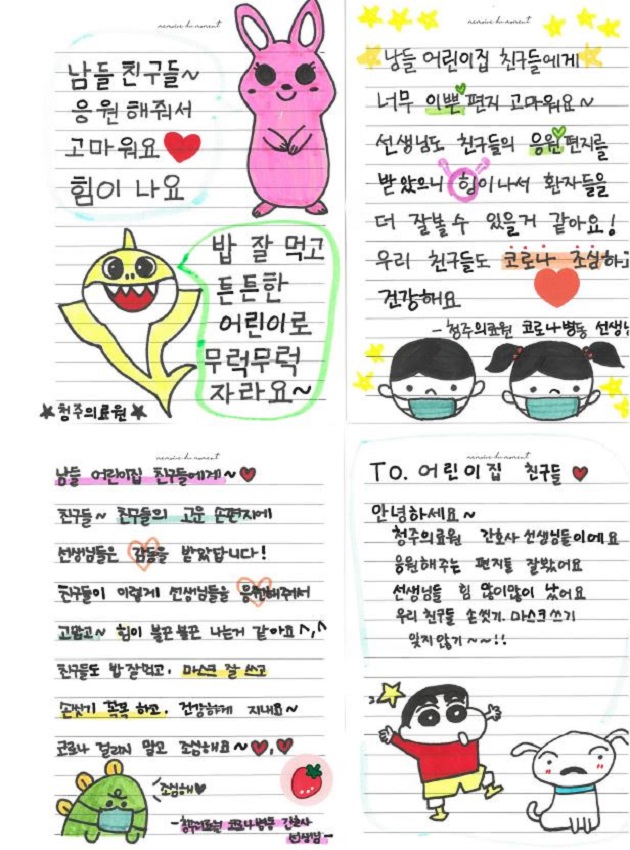 memoire du moment
남들 친구들~
응원 해줘서
고마워요
힘이 나요
밥 잘 먹고
튼튼한
어린이로
무럭무럭
자라요~
★청주의료원★
memoire du moment
남들 어린이집 친구들에게
너무 이쁜 편지 고마워요~
선생님도 친구들의 응원 편지를
받았으니 힘이나서 환자들을
더 잘볼수 있을거 같아요!
우리 친구들도 코로나 조심하고
건강해요
- 청주의료원 코로나병동 선생님
memoire du moment
남들 어린이집 친구들에게~♥
친구들~ 친구들의 고운 손편지에
선생님들은 감동을 받았답니다!
친구들이 이렇게 선생님들을 응원해주어서
고맙고~ 힘이 불끈불끈 나는거 같아요^,^
친구들도 밥 잘먹고, 마스크 잘 쓰고
손씻기 꼭꼭 하고, 건강하게 지내요~
코로나 걸리지 말고 조심해요~♥,♥
조심해♥
- 청주의료원 코로나병동 간호사
선생님-
memoire du moment
TO. 어린이집 친구들 ♥
안녕하세요~
청주의료원 간호사 선생님들이에요
응원해주는 편지들 잘봤어요
선생님들 힘 많이많이 났어요
우리 친구들 손씻기. 마스크쓰기
잊지않기~~!!